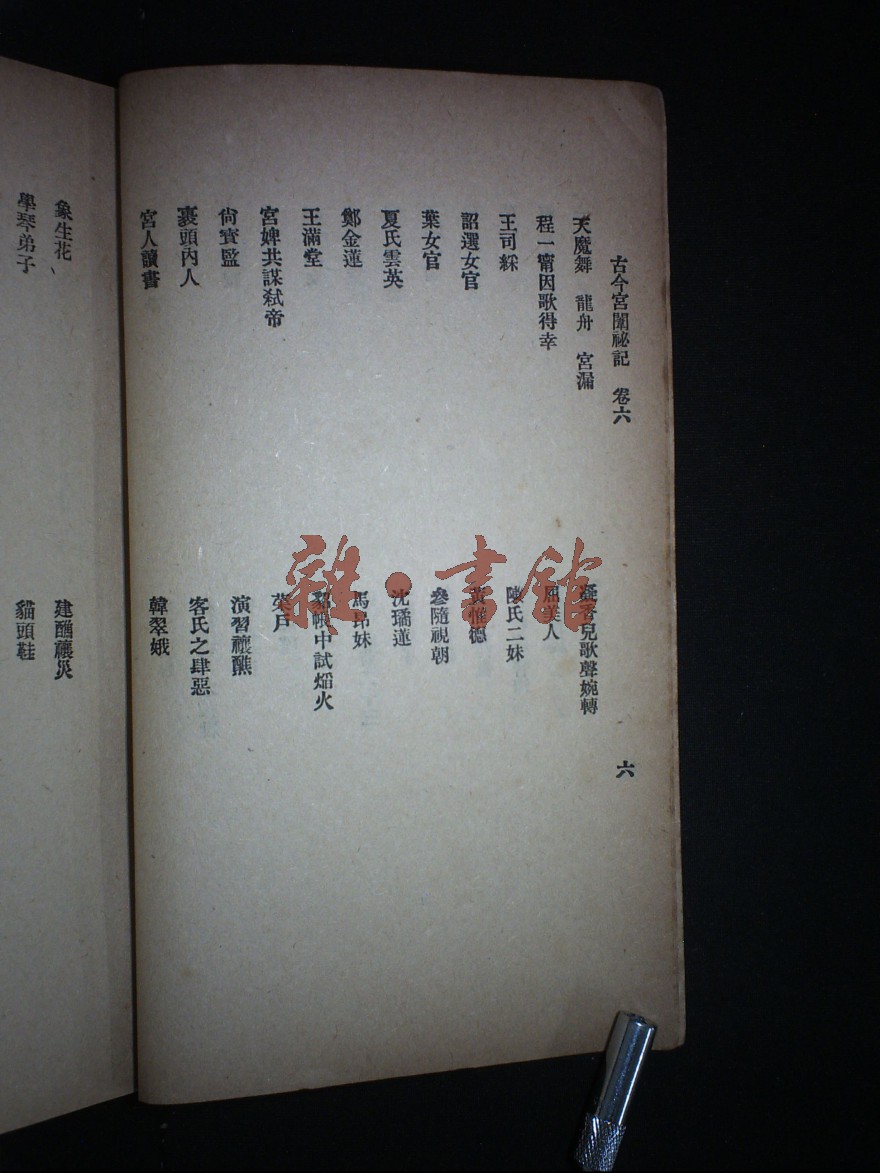 古今宮闈祕記 卷六 六
天魔舞 龍舟 宮漏
凝香兒歌聲婉轉
程一甯因歌得幸
美人
王司綵
陳氏二妹
詔選女官
黃惟德
葉女官
叅隨視朝
夏氏雲英
沈瓊蓮
鄭金蓮
馬昂妹
王滿堂
貂帳中試熖火
宮婢共謀弒帝
菜戶
尙寶監
演習禳醮
裹頭內人
客氏之肆惡
宮人讀書
韓翠娥
象生花
建醮禳災
學琴弟子
貓頭鞋
雜·書館